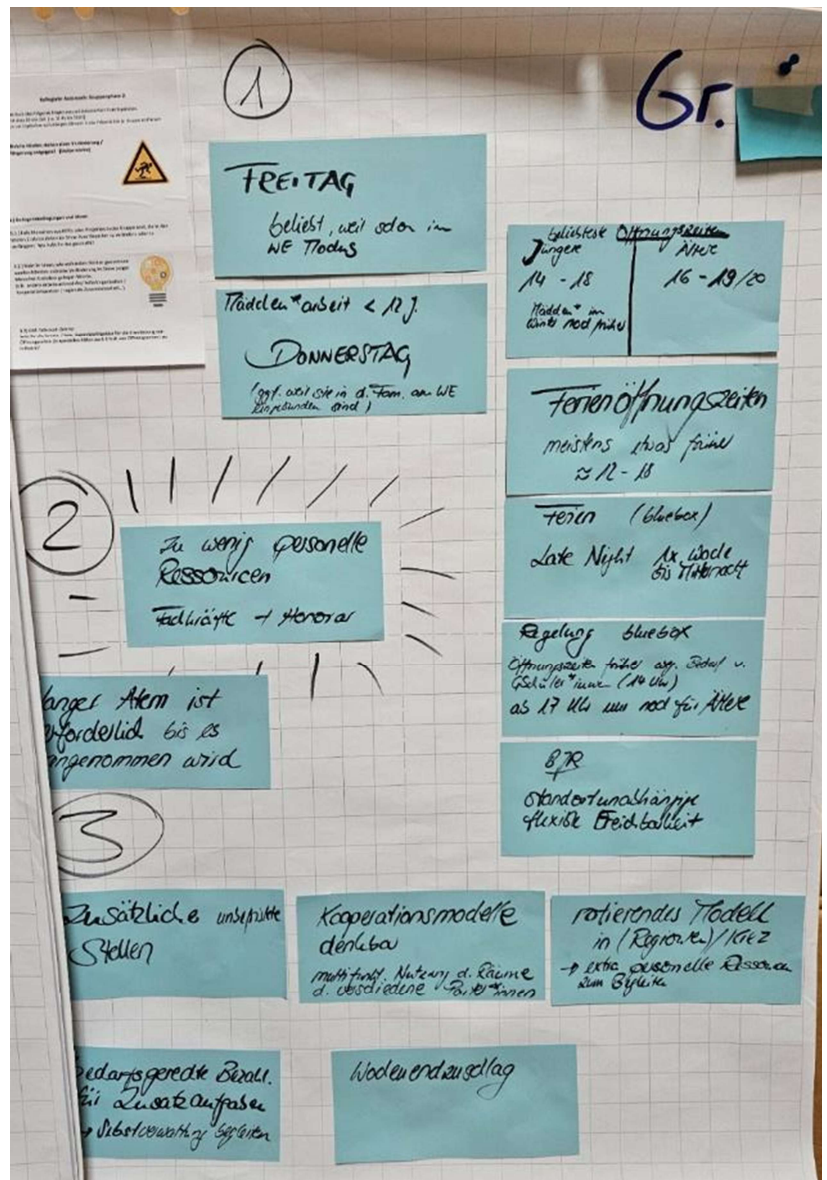 1
Gr.
FREITAG
beliebt, weil schon im
WE Modus
Mädchen*arbeit < 12 J.
DONNERSTAG
(ggf. weil sie in d. Fam. am WE
eingebunden sind)
beliebteste Öffnungszeiten
Jüngere
Ältere
14 - 18
16 - 19/20
Mädchen* im
Winter noch früher
Ferienöffnungszeiten
meistens etwas früher
≈ 12 - 18
Ferien (bluebox)
Late Night 1x Woche
bis Mitternacht
Regelung bluebox
Öffnungszeiten früher Bedarf v.
GSchüler*innen (14 Uhr)
ab 17 Uhr nur noch für Ältere
BJR
standortunabhängige
flexible Erreichbarkeit
2
Zu wenig personelle
Ressourcen
Fachkräfte + Honorar
langer Atem ist
erforderlich bis es
angenommen wird
3
Zusätzliche unbefristete
Stellen
Kooperationsmodelle
denkbar
multifunkt. Nutzung d. Räume
d. verschiedene Partner*innen
rotierendes Modell
in (Regionen) / KIEZ
→ extra personelle Ressourcen
zum Begleiten
bedarfsgerechte Bezahl.
für Zusatzaufgaben
→ Selbstverwaltung begleiten
Wochenendzuschlag